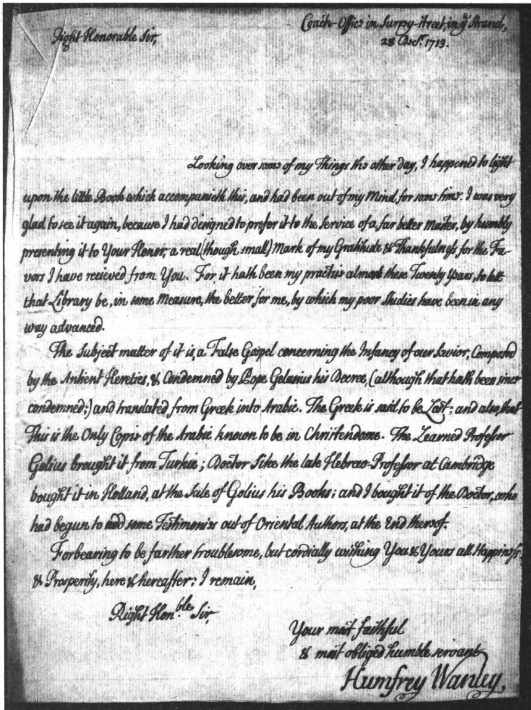 Coach-Office in Surrey-street, in yᵉ Strand,
Right Honorable Sir,
28 Decʳ. 1713.
Looking over some of my Things the other day, I happened to light
upon the little Book which accompanieth this, and had been out of my Mind for some time. I was very
glad to see it again, because I had designed to prefer it to the Service of a far better Master, by humbly
presenting it to Your Honor, a real (though small) Mark of my Gratitude & Thankfulness for the Fa-
vors I have recieved from You. For it hath been my practise almost these Twenty years, to lett
that Library be, in some Measure, the better for me, by which my poor Studies have been in any
way advanced.
The Subject matter of it is, a False Gospel concerning the Infancy of our Savior, Composed
by the Antient Heretics, & Condemned by Pope Gelasius his Decree, (although that hath been since
condemned;) and translated from Greek into Arabic. The Greek is said to be Lost; and also, that
This is the Only Copie of the Arabic known to be in Christendome. The Learned Professor
Golius brought it from Turkie; Doctor Sike the late Hebrew-Professor at Cambridge
bought it in Holland, at the Sale of Golius his Books; and I bought it of the Doctor, who
had begun to add some Testimonies out of Oriental Authors, at the End thereof.
Forbearing to be farther troublesome, but cordially wishing You & Yours all Happiness,
& Prosperity, here & hereafter; I remain,
Right Hon.ble Sir,
Your most faithful
& most obliged humble servant
Humfrey Wanley,